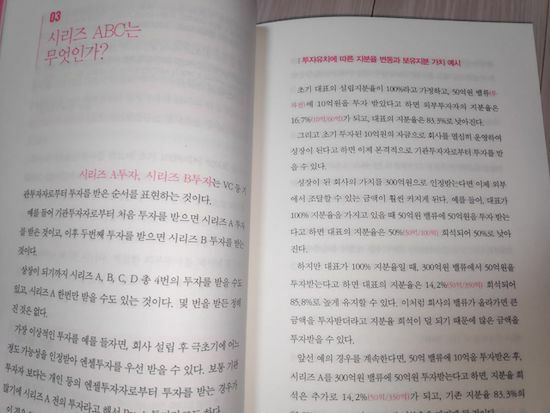 03
시리즈 ABC는
무엇인가?
시리즈 A투자, 시리즈 B투자는 VC 등 기
관투자자로부터 투자를 받은 순서를 표현하는 것이다.
예를 들어 기관투자자로부터 처음 투자를 받으면 시리즈 A 투자
를 받은 것이고, 이후 두번째 투자를 받으면 시리즈 B 투자를 받는
것이다.
상장이 되기까지 시리즈 A, B, C, D 총 4번의 투자를 받을 수도
있고, 시리즈 A 한번만 받을 수도 있는 것이다. 몇 번을 받든 정해
진 것은 없다.
가장 이상적인 투자를 예를 들자면, 회사 설립 후 극초기에 어느
정도 가능성을 인정받아 엔젤투자를 우선 받을 수 있다. 보통 기관
투자자 보다는 개인 등의 엔젤투자자로부터 투자를 받는 경우가
많기에 시리즈 A 전의 투자라고 해서
투자유치에 따른 지분율 변동과 보유지분 가치 예시
초기 대표의 설립지분율이 100%라고 가정하고, 50억원 밸류(투
자전)에 10억원을 투자 받았다고 하면 외부투자자의 지분율은
16.7%(10억/60억)가 되고, 대표의 지분율은 83.3%로 낮아진다.
그리고 초기 투자된 10억원의 자금으로 회사를 열심히 운영하여
성장이 된다고 하면 이제 본격적으로 기관투자자로부터 투자를 받
을 수 있다.
성장이 된 회사의 가치를 300억원으로 인정받는다면 이제 외부
에서 조달할 수 있는 금액이 훨씬 커지게 된다. 예를 들어, 대표가
100% 지분율을 가지고 있을 때 50억원 밸류에 50억원을 투자 받는
다고 하면 대표의 지분율은 50%(50억/100억) 희석되어 50%로 낮아
진다.
하지만 대표가 100% 지분율일 때, 300억원 밸류에서 50억원을
투자받는다고 하면 대표의 지분율은 14.2%(50억/350억) 희석되어
85.8%로 높게 유지할 수 있다. 이처럼 회사의 밸류가 올라가면 큰
금액을 투자받더라고 지분율 희석이 덜 되기 때문에 많은 금액을
투자받을 수 있다.
앞선 예의 경우를 계속한다면, 50억원 밸류에 10억을 투자받은 후,
시리즈 A를 300억원 밸류에 50억원을 투자받는다고 하면, 지분율 희
석은 추가로 14.2%(50억/350억)가 되고, 기존 지분율 83.3%의